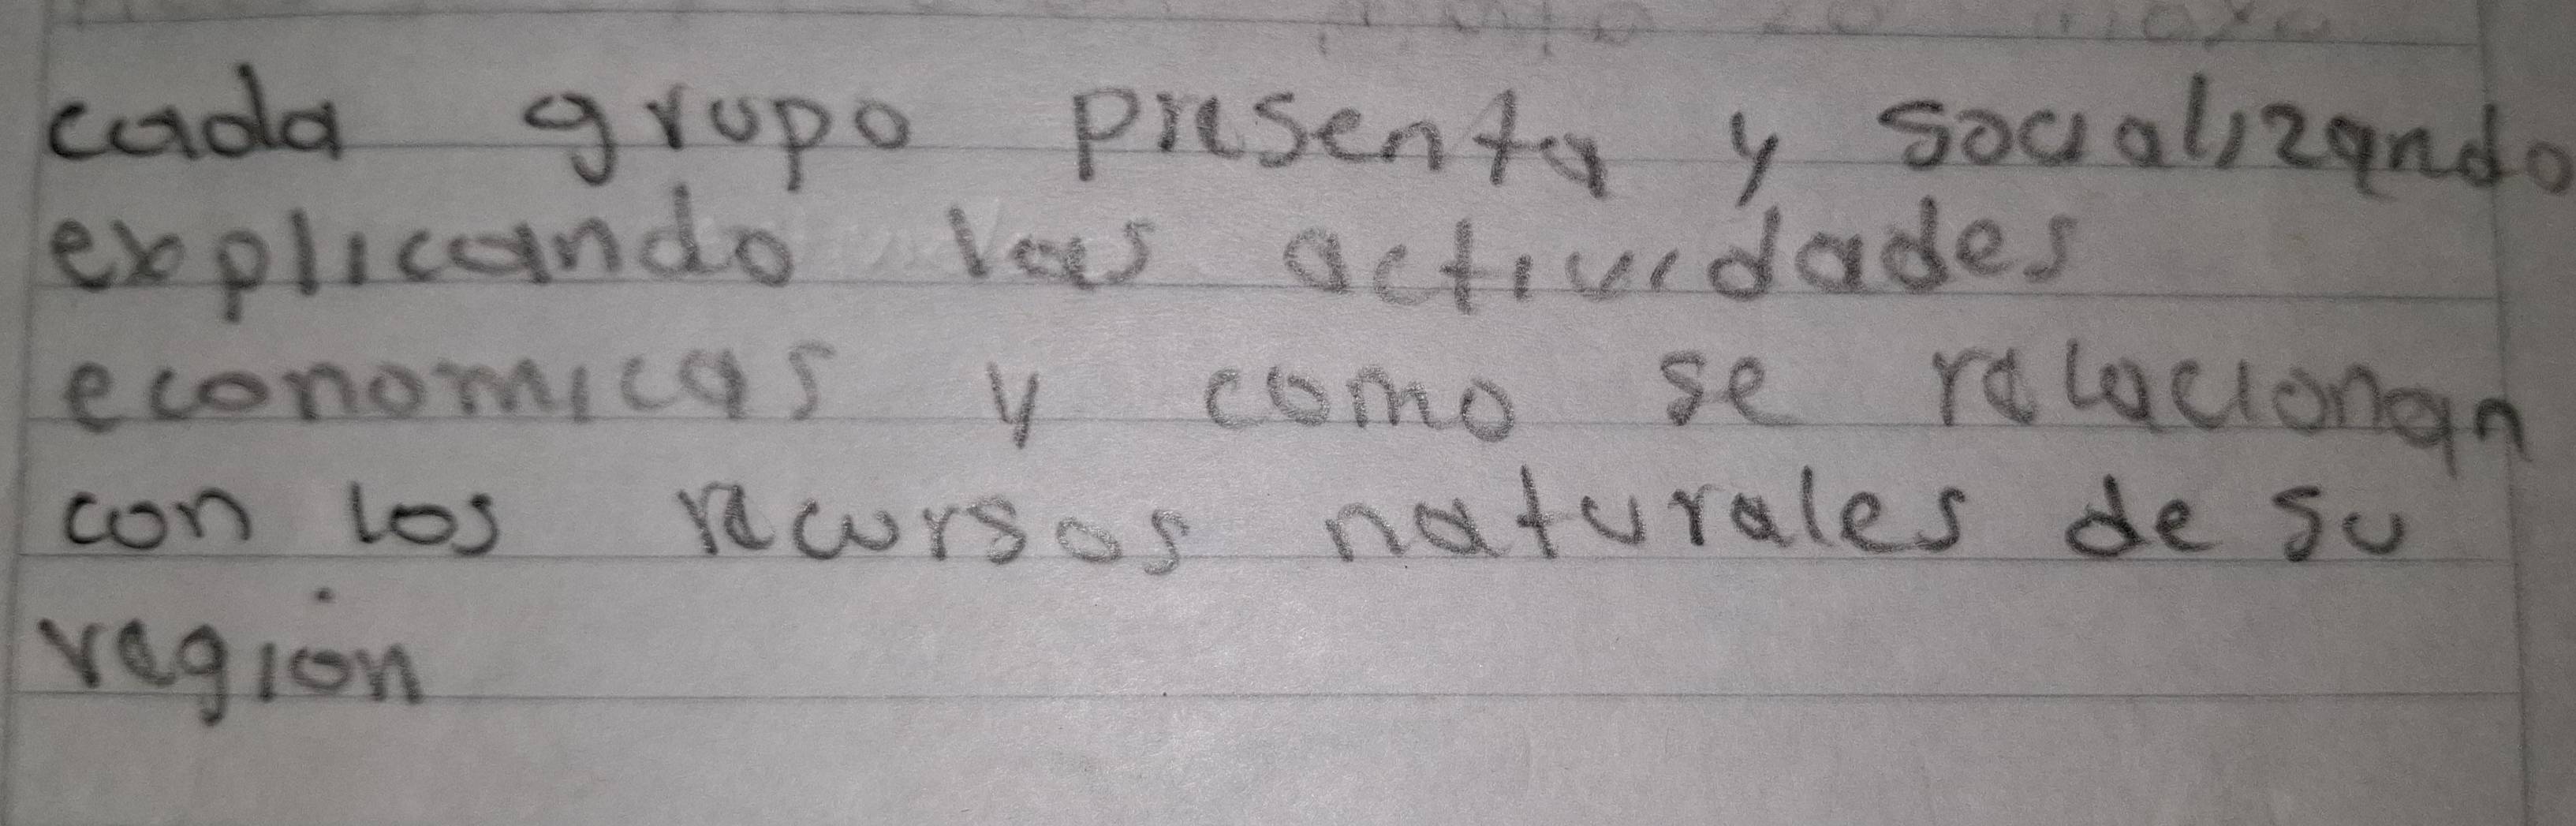 cada grupo presenta y socializando
explicando las actividades
economicas y como se relacionan
con los recursos naturales de su
región